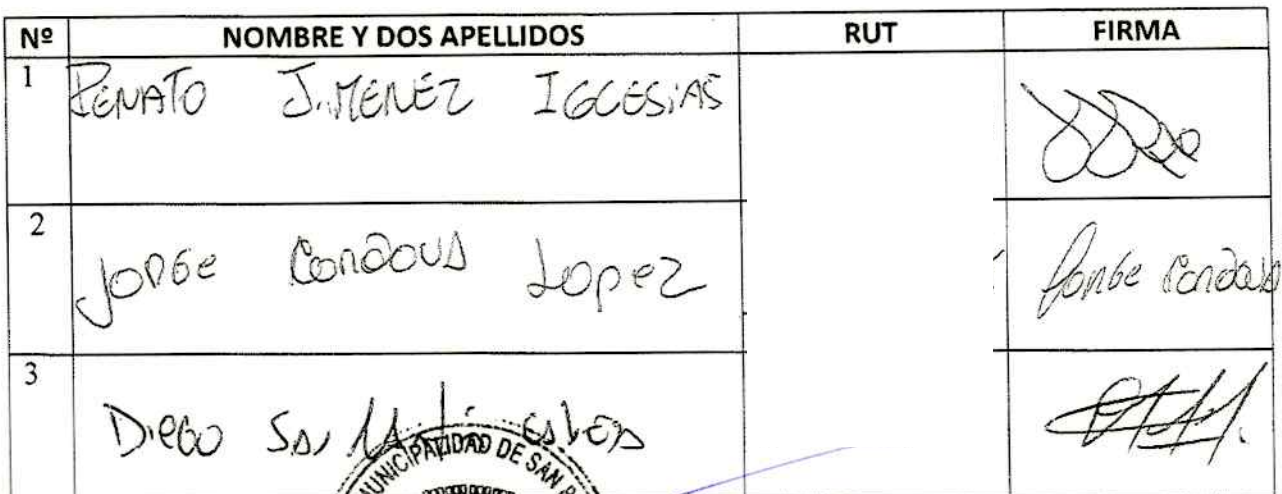 Nº NOMBRE Y DOS APELLIDOS RUT FIRMA
1 RENATO JiMENEZ IGLESiAS
2 JORGe CORDOVA Lopez Jorge Cordova
3 DieGO SAN
MUNICIPALIDAD DE SAN